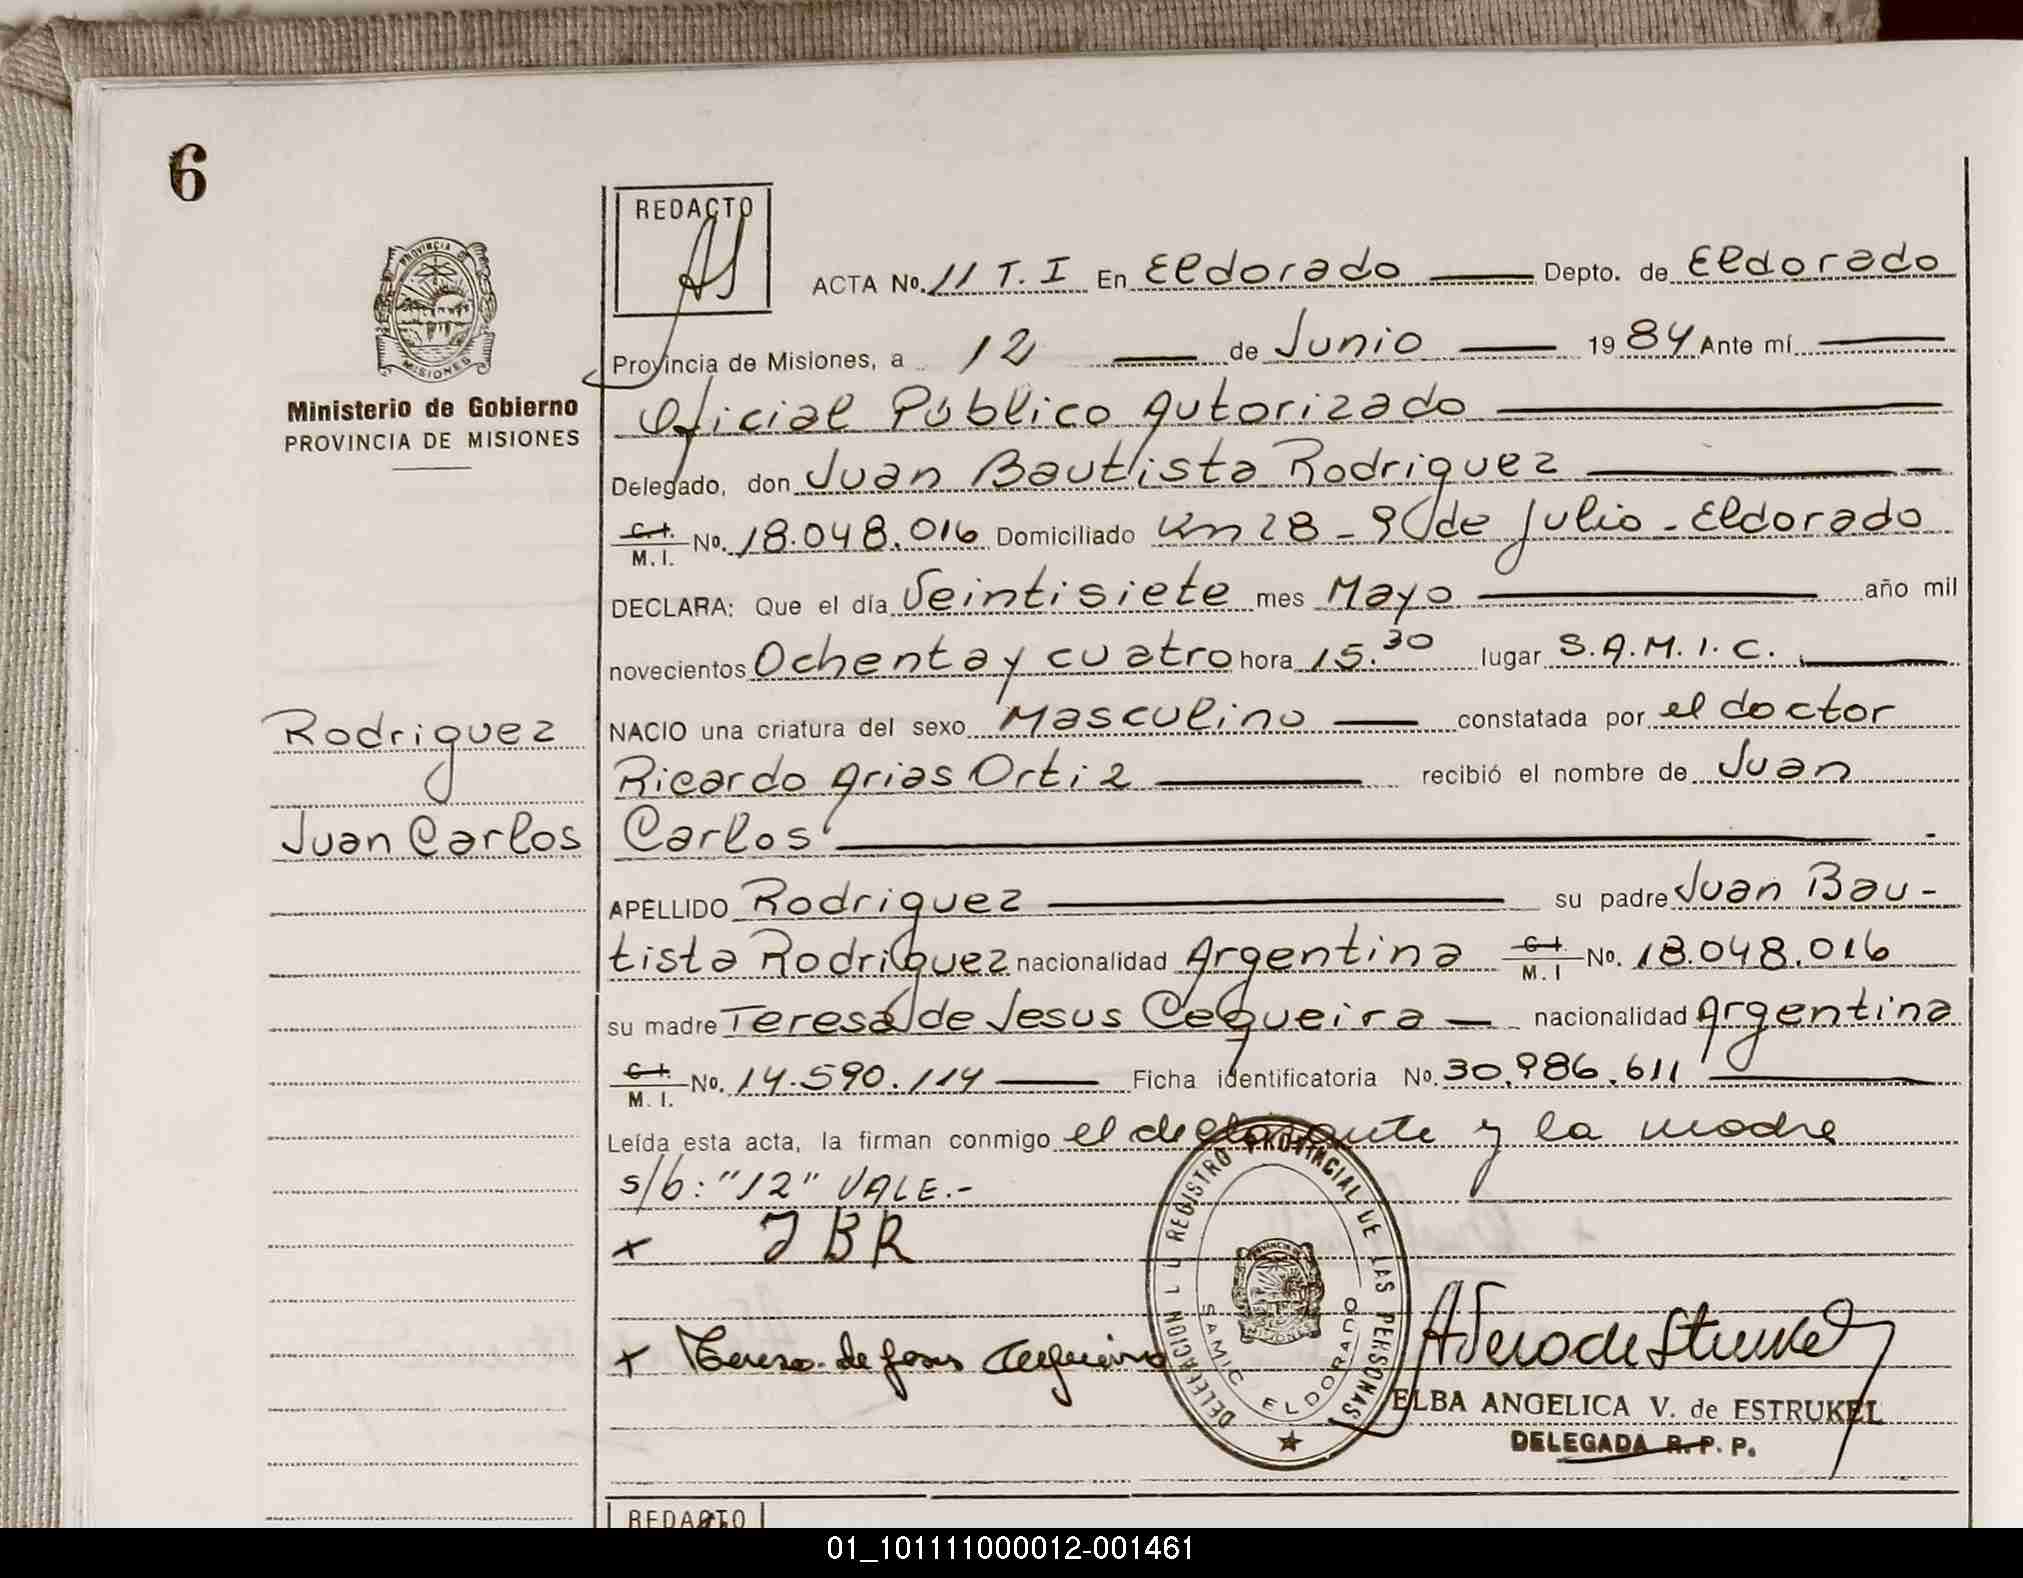 6
REDACTO
ACTA No. 11 T. I En Eldorado Depto. de Eldorado
Provincia de Misiones, a 12 de Junio 1984 Ante mí
Oficial Público Autorizado
Delegado, don Juan Bautista Rodriguez
C.I.
M. I. No. 18.048.016 Domiciliado Km 28 - 9 de Julio - Eldorado
DECLARA: Que el día Veintisiete mes Mayo año mil
novecientos Ochenta y cuatro hora 15.30 lugar S.A.M.I.C.
NACIO una criatura del sexo Masculino constatada por el doctor
Ricardo Arias Ortiz recibió el nombre de Juan
Carlos
APELLIDO Rodriguez su padre Juan Bau-
tista Rodriguez nacionalidad Argentina C.I. M. I No. 18.048.016
su madre Teresa de Jesus Cequeira nacionalidad Argentina
C.I.
M. I. No. 14.590.114 Ficha identificatoria No. 30.986.611
Leída esta acta, la firman conmigo el declarante y la madre
s/b: "12" VALE.-
x JBR
x Teresa de Jesus Cequeira
ELBA ANGELICA V. de ESTRUKEL
DELEGADA R. P. P.
PROVINCIA DE
MISIONES
Ministerio de Gobierno
PROVINCIA DE MISIONES
Rodriguez
Juan Carlos
DELEGACION REGISTRO PROVINCIAL DE LAS PERSONAS
SAMIC ELDORADO
MISIONES
REDACTO
01_101111000012-001461